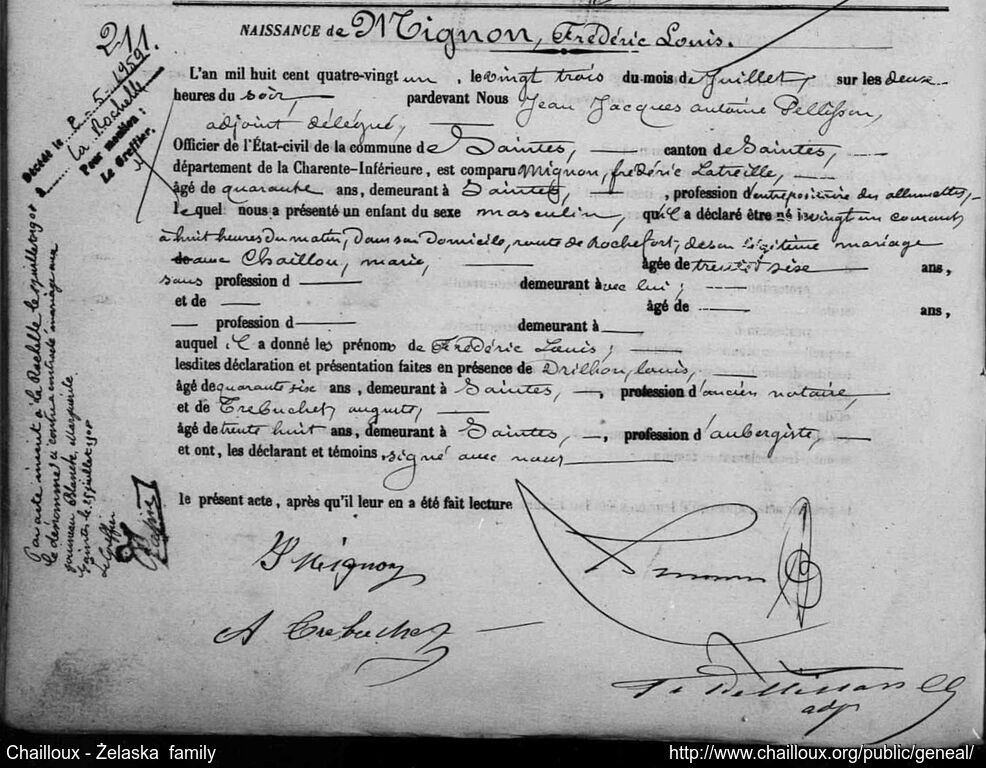 211
NAISSANCE de Mignon, Frédéric Louis.
L'an mil huit cent quatre-vingt un, le vingt trois du mois de Juillet, sur les deux
heures du soir, pardevant Nous Jean Jacques antoine Pellisson,
adjoint délégué,
Officier de l'État-civil de la commune de Saintes, canton de Saintes,
département de la Charente-Inférieure, est comparu Mignon, frédéric Latreille,
âgé de quarante ans, demeurant à Saintes, profession d'entrepositaire des allumettes,
lequel nous a présenté un enfant du sexe masculin, qu'il a déclaré être né le vingt un courant
à huit heures du matin, dans son domicile, route de Rochefort, de son légitime mariage
avec Chaillou, marie, âgée de trente sixe ans,
sans profession d demeurant avec lui;
et de âgé de ans,
profession d demeurant à
auquel il a donné les prénoms de Frédéric Louis;
lesdites déclaration et présentation faites en présence de Drilhon, louis,
âgé de quarante sixe ans, demeurant à Saintes, profession d'ancien notaire,
et de Trebuchet auguste,
âgé de trente huit ans, demeurant à Saintes, profession d'aubergiste,
et ont, les déclarant et témoins, signé avec nous
le présent acte, après qu'il leur en a été fait lecture
Mignon
A Trebuchet
Pellisson
adj
Décédé le 8-5-1959
à La Rochelle
Pour mention:
Le Greffier.
Par acte inscrit à la Rochelle le juillet 1908
le dénommé ci contre a contracté mariage avec
Blanche Marguerite
Saintes le 25 juillet 1908
Le Greffier
Chailloux - Żelaska family
http://www.chailloux.org/public/geneal/